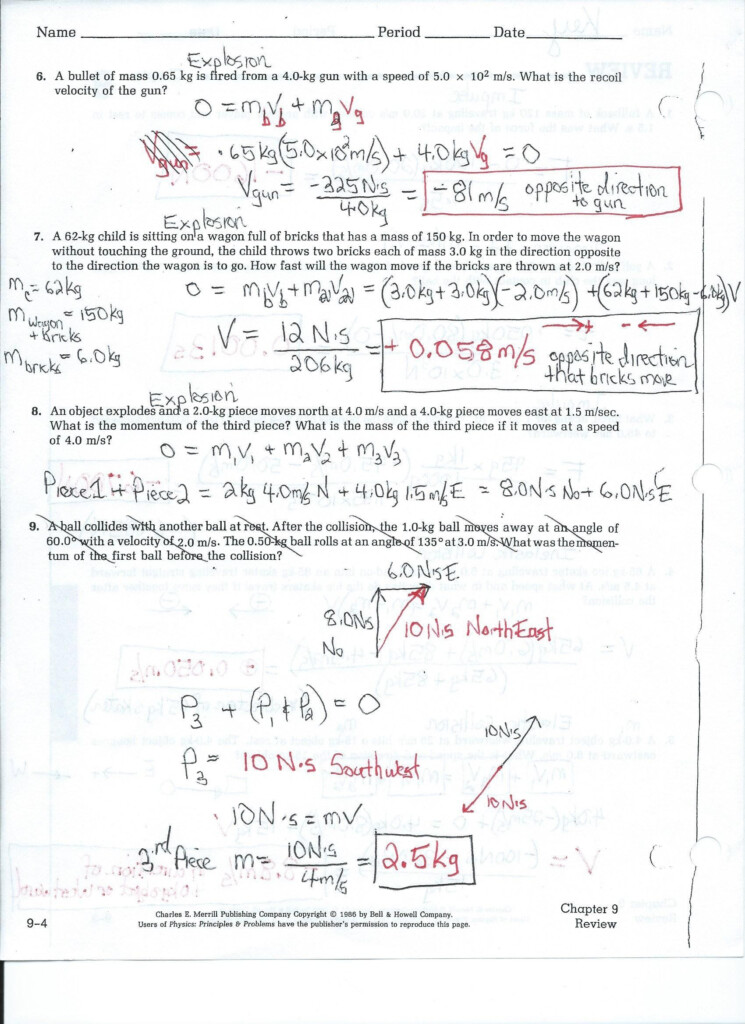 Name Period Date
Explosion
6. A bullet of mass 0.65 kg is fired from a 4.0-kg gun with a speed of 5.0 × 10² m/s. What is the recoil
velocity of the gun?
0 = m_b V_b + m_g V_g
V_gun = .65kg(5.0x10²m/s) + 4.0kg V_g = 0
V_gun = -325 N·s / 4.0kg = -81 m/s opposite direction to gun
Explosion
7. A 62-kg child is sitting on a wagon full of bricks that has a mass of 150 kg. In order to move the wagon
without touching the ground, the child throws two bricks each of mass 3.0 kg in the direction opposite
to the direction the wagon is to go. How fast will the wagon move if the bricks are thrown at 2.0 m/s?
m_c = 62kg
m wagon + bricks = 150kg
m bricks = 6.0kg
0 = m_b V_b + m_w V_w = (3.0kg + 3.0kg)(-2.0m/s) + (62kg + 150kg - 6.0kg)V
V = 12 N·s / 206kg = + 0.058 m/s opposite direction that bricks move
→ + - ←
Explosion
8. An object explodes and a 2.0-kg piece moves north at 4.0 m/s and a 4.0-kg piece moves east at 1.5 m/sec.
What is the momentum of the third piece? What is the mass of the third piece if it moves at a speed
of 4.0 m/s?
0 = m₁V₁ + m₂V₂ + m₃V₃
Piece 1 + Piece 2 = 2kg 4.0m/s N + 4.0kg 1.5m/s E = 8.0N·s No + 6.0N·s E
9. A ball collides with another ball at rest. After the collision, the 1.0-kg ball moves away at an angle of
60.0° with a velocity of 2.0 m/s. The 0.50-kg ball rolls at an angle of 135° at 3.0 m/s. What was the momen-
tum of the first ball before the collision?
6.0N·s E
8.0N·s
No
10 N·s NorthEast
P₃ + (P₁ & P₂) = 0
P₃ = 10 N·s Southwest
10N·s
10N·s
10N·s = mV
3rd Piece m = 10N·s / 4m/s = 2.5kg
9-4
Charles E. Merrill Publishing Company Copyright © 1986 by Bell & Howell Company.
Users of Physics: Principles & Problems have the publisher's permission to reproduce this page.
Chapter 9
Review